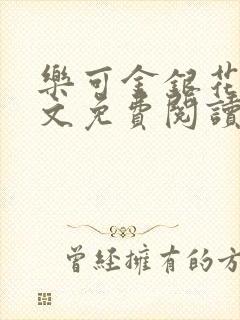 樂可金銀花
文免費閱讀
曾經擁有的方